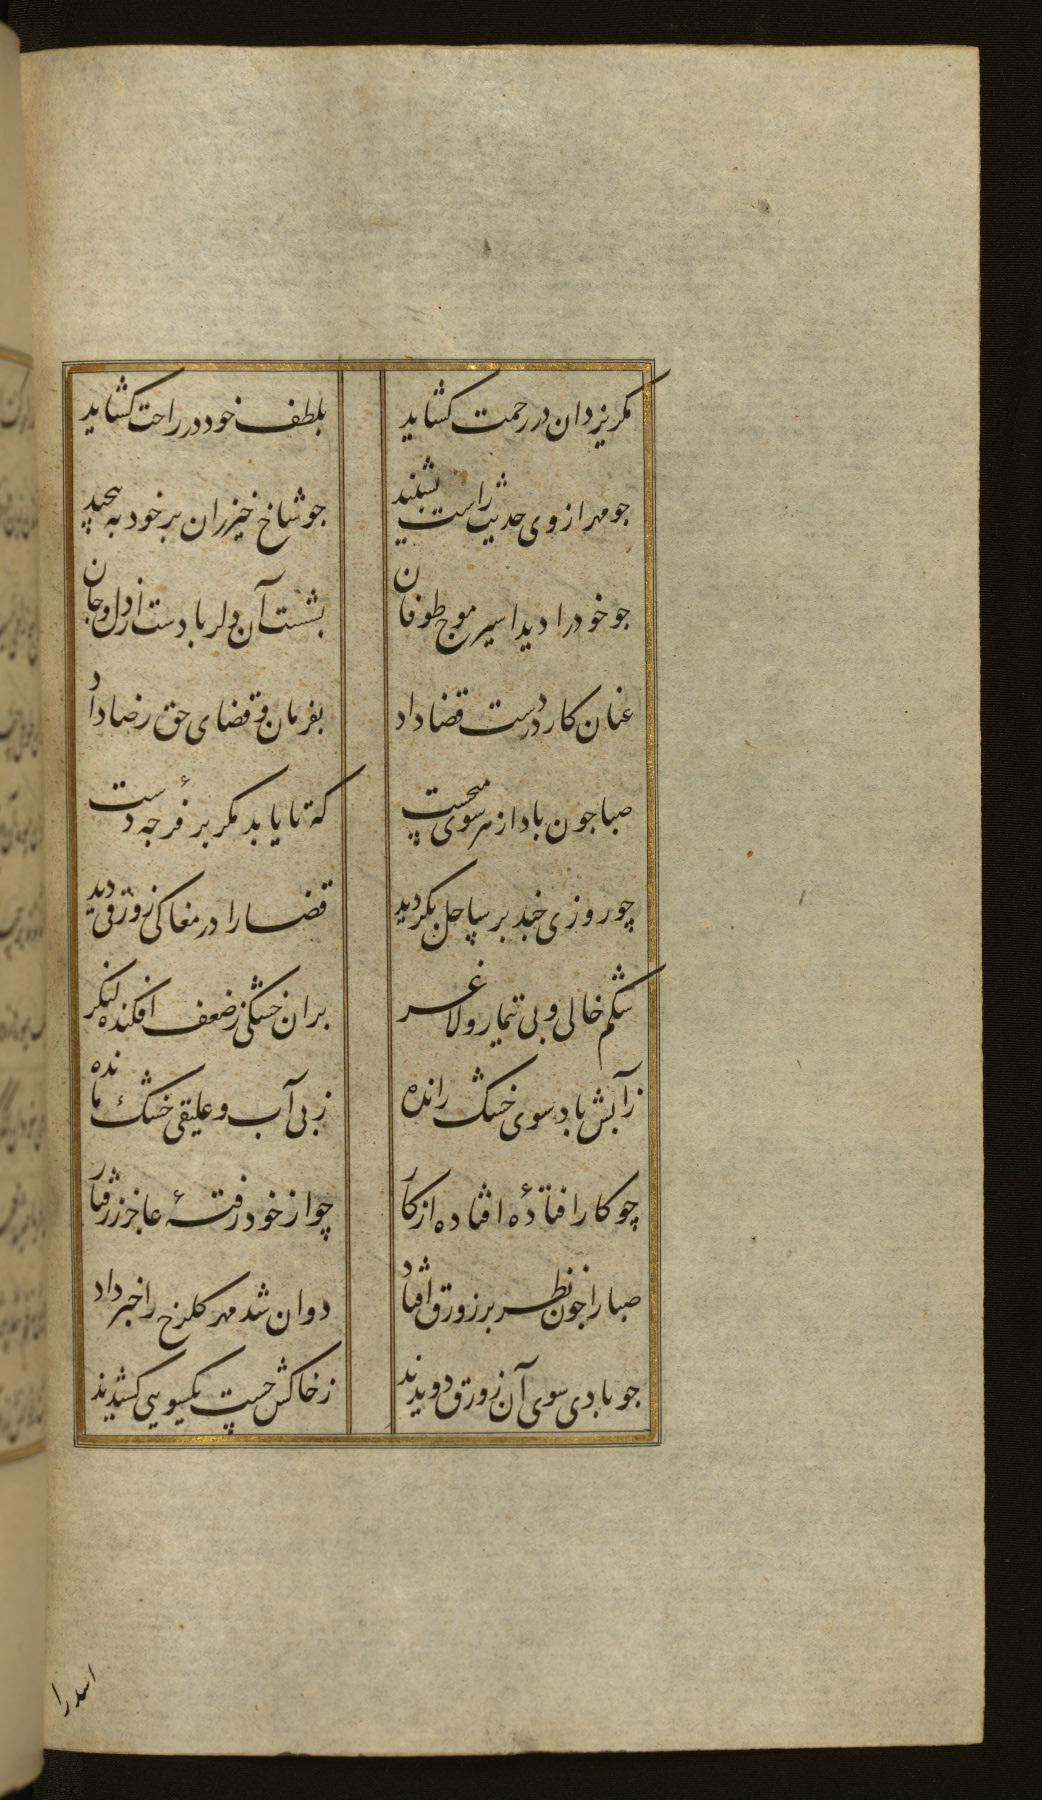 مکر یزدان در رحمت کشاید بلطف خود در راحت کشاید
جو مهر از وی حدیث راست بشنید جو شاخ خیزران بر خود به پیچید
جو خود را دید اسیر موج طوفان بشست آن دلربا دست از دل و جان
عنان کار در دست قضا داد بفرمان قضای حق رضا داد
صبا جون باد از هر سوی میجست که تا یابد مکر بر فرجهٔ دست
چو روزی جند بر ساحل بکردید قضا را در مغاکی زورقی دید
شکم خالی و بی تیمار و لاغر بران خشکی ز ضعف افکنده لنکر
ز آبش باد سوی خشک رانده ز بی آب و علیقی خشک مانده
چو کار افتادهٔ افتاده از کار چو از خود رفتهٔ عاجز ز رفتار
صبا را جون نظر بر زورق افتاد دوان شد مهر کلرخ را خبر داد
جو بادی سوی آن زورق دویدند ز خاکش جست یکسویی کشیدند